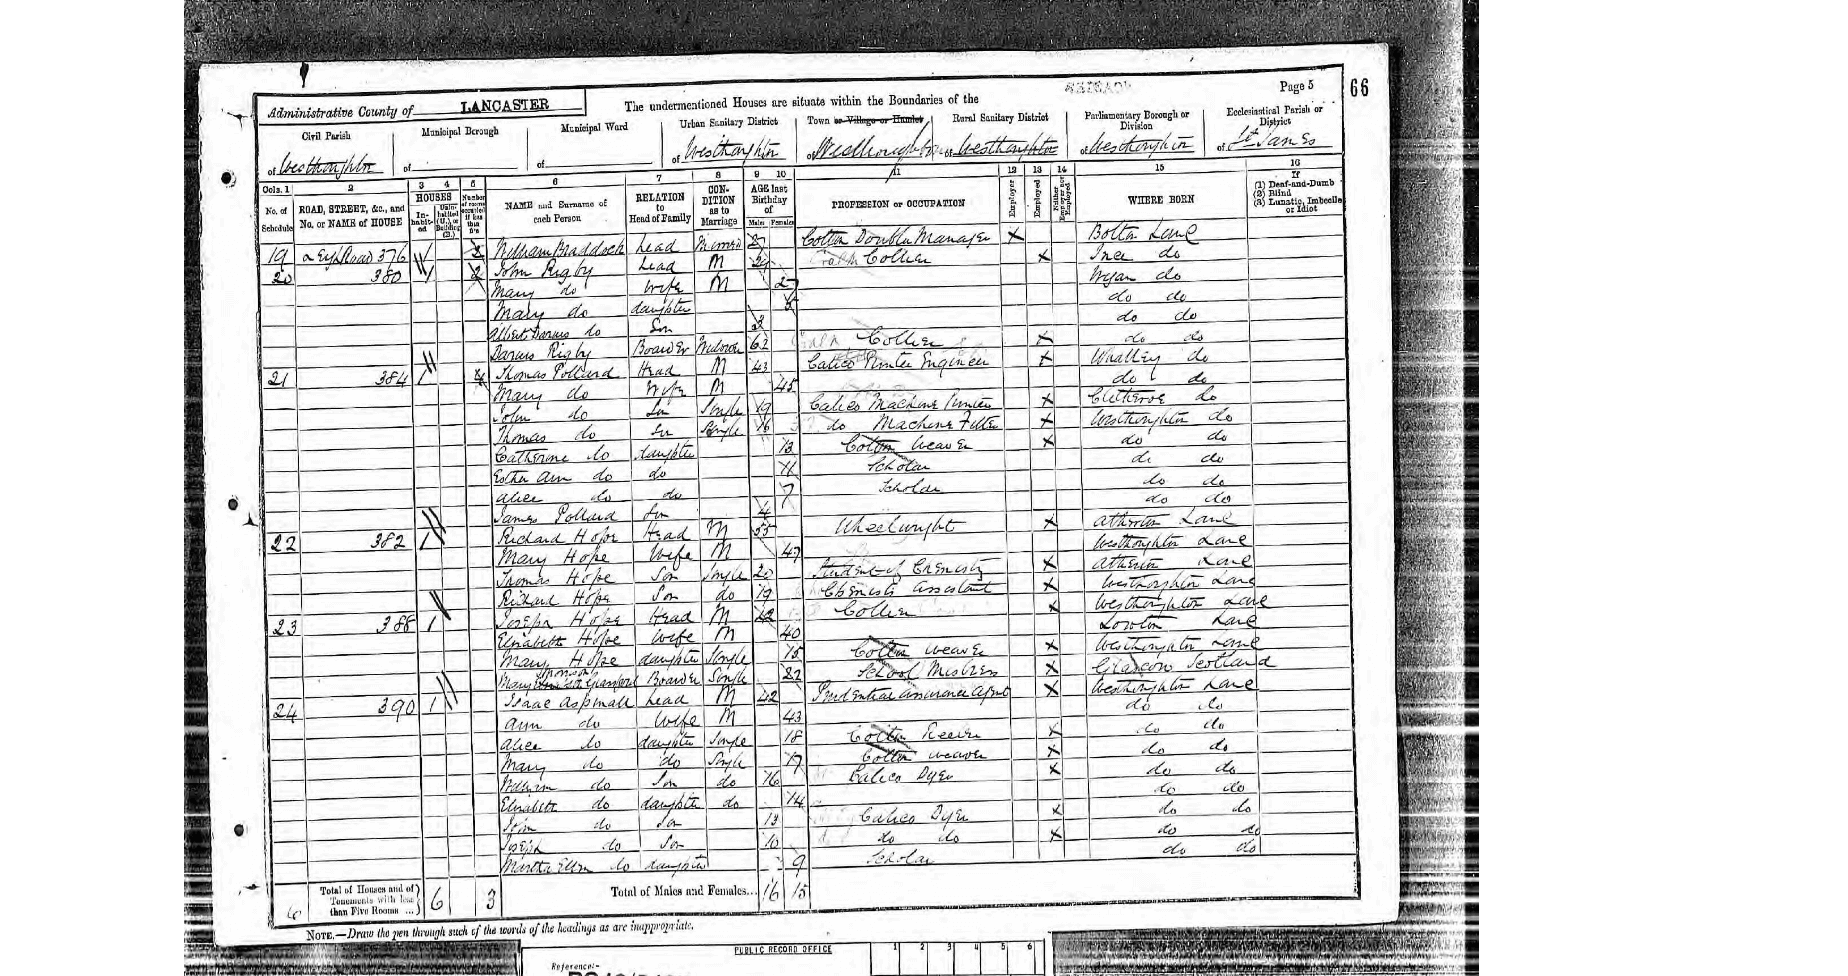 Page 5
66
Administrative County of LANCASTER
The undermentioned Houses are situate within the Boundaries of the
Civil Parish
of Westhoughton
Municipal Borough
of
Municipal Ward
of
Urban Sanitary District
of Westhoughton
Town or Village or Hamlet
of Westhoughton
Rural Sanitary District
of Westhoughton
Parliamentary Borough or Division
of Westhoughton
Ecclesiastical Parish or District
of St James
Cols. 1 2 3 4 5 6 7 8 9 10 11 12 13 14 15 16
No. of Schedule
ROAD, STREET, &c., and No. or NAME of HOUSE
HOUSES
In-habit-ed
Unin-habited (U.), or Building (B.)
Number of rooms occupied if less than five
NAME and Surname of each Person
RELATION to Head of Family
CON-DITION as to Marriage
AGE last Birthday of
Males Females
PROFESSION or OCCUPATION
Employer
Employed
Neither Employer nor Employed
WHERE BORN
If
(1) Deaf-and-Dumb
(2) Blind
(3) Lunatic, Imbecile or Idiot
19 Leigh Road 376 1 William Braddock Head Cotton Doubler Manager X Bolton Lanc
20 380 1 2 John Rigby Head M 29 Coal Collier X Ince do
Mary do Wife M 27 Wigan do
Mary do daughter 5 do do
Albert Darius do Son 3 do do
Darius Rigby Boarder Widower 62 Collier X do do
21 384 1 4 Thomas Pollard Head M 43 Calico Printer Engineer X Whalley do
Mary do Wife M 45 do do
John do Son Single 19 Calico Machine Printer X Clitheroe do
Thomas do Son Single 16 do Machine Fitter X Westhoughton do
Catherine do daughter 13 Cotton Weaver X do do
Esther Ann do do 11 Scholar do do
Alice do do 7 Scholar do do
James Pollard Son 4 do do
22 382 1 Richard Hope Head M 55 Wheelwright X Atherton Lanc
Mary Hope Wife M 47 Westhoughton Lanc
Thomas Hope Son Single 20 Student of Chemistry X Atherton Lanc
Richard Hope Son do 19 Chemists assistant X Westhoughton Lanc
23 388 1 Joseph Hope Head M 42 Collier X Westhoughton Lanc
Elizabeth Hope Wife M 40 Lowton Lanc
Mary Hope daughter Single 15 Cotton Weaver X Westhoughton Lanc
Mary Boarder Single 22 School Mistress X Glasgow Scotland
24 390 1 Isaac Aspinall Head M 42 Prudential assurance agent X Westhoughton Lanc
Ann do Wife M 43 do do
Alice do daughter Single 18 Cotton Reeler X do do
Mary do do Single 17 Cotton weaver X do do
William do Son do 16 Calico Dyer X do do
Elizabeth do daughter do 14 do do
John do Son 13 Calico Dyer X do do
Joseph do Son 10 do do X do do
Martha Ellen do daughter 9 Scholar do do
6 Total of Houses and of Tenements with less than Five Rooms ... 6 3 Total of Males and Females... 16 15
NOTE.—Draw the pen through such of the words of the headings as are inappropriate.
PUBLIC RECORD OFFICE 1 2 3 4 5 6
Reference:-